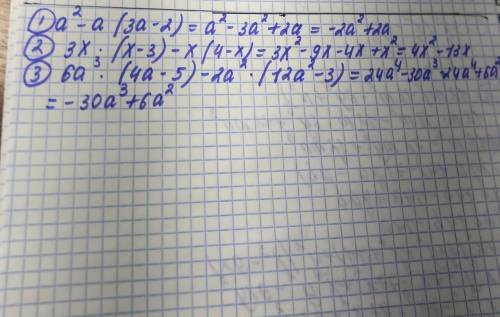 ① a² - a (3a - 2) = a² - 3a² + 2a = -2a² + 2a
② 3x · (x - 3) - x (4 - x) = 3x² - 9x - 4x + x² = 4x² - 13x
③ 6a³ · (4a - 5) - 2a² · (12a² - 3) = 24a⁴ - 30a³ - 24a⁴ + 6a²
= - 30a³ + 6a²